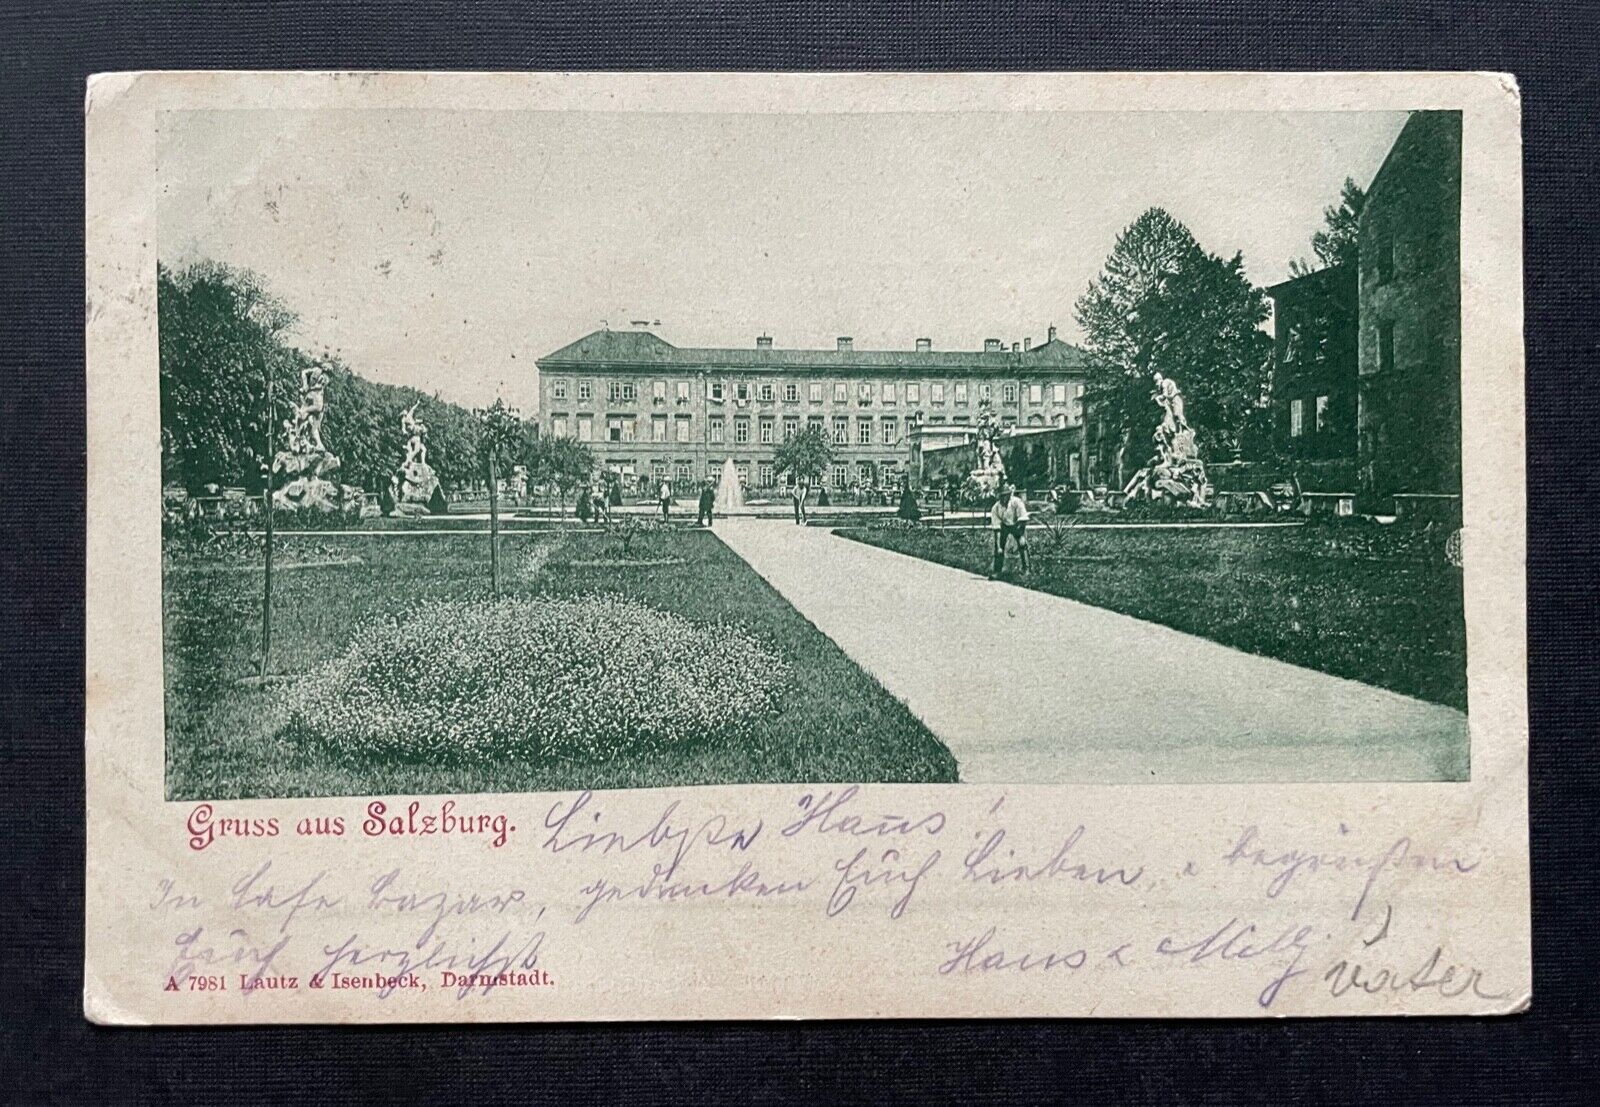 Gruss aus Salzburg.
Liebste Hans!
In Cafe Bazar, gedenken Euch Lieben, & begrüßen
Euch herzlichst
Hans & Milly.
Vater
A 7981 Lautz & Isenbeck, Darmstadt.